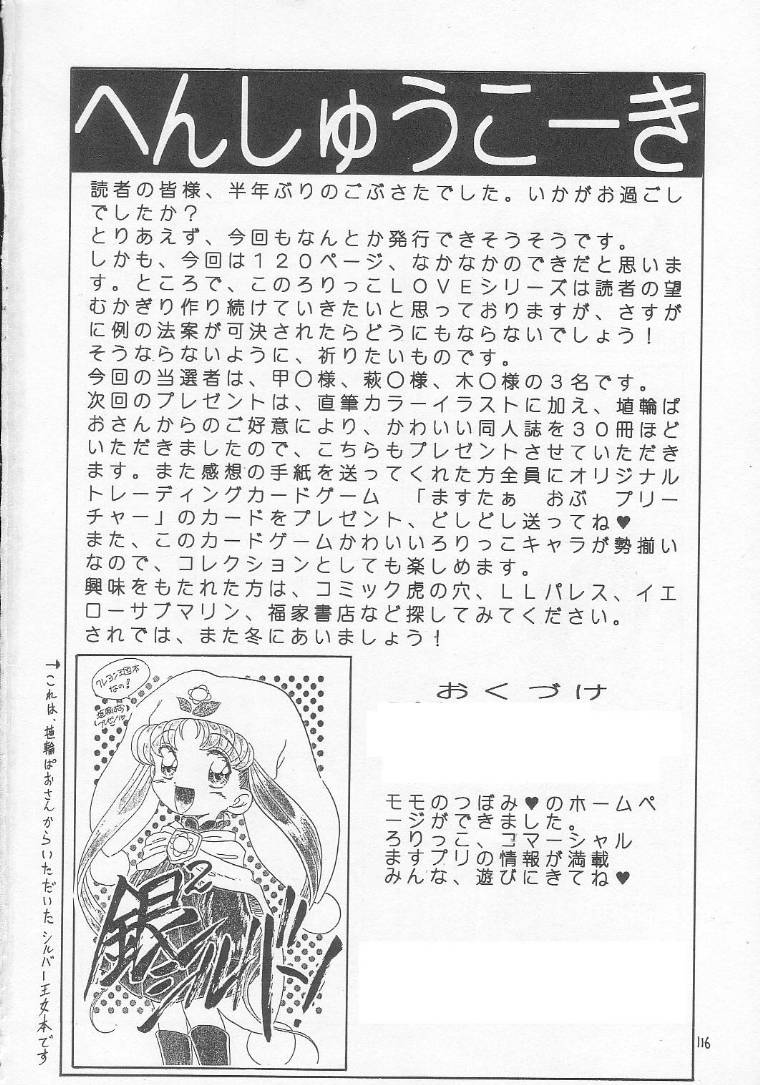 へんしゅうこーき
読者の皆様、半年ぶりのごぶさたでした。いかがお過ごし
でしたか？
とりあえず、今回もなんとか発行できそうそうです。
しかも、今回は１２０ページ、なかなかのできだと思いま
す。ところで、このろりっこＬＯＶＥシリーズは読者の望
むかぎり作り続けていきたいと思っておりますが、さすが
に例の法案が可決されたらどうにもならないでしょう！
そうならないように、祈りたいものです。
今回の当選者は、甲〇様、萩〇様、木〇様の３名です。
次回のプレゼントは、直筆カラーイラストに加え、埴輪ぱ
おさんからのご好意により、かわいい同人誌を３０冊ほど
いただきましたので、こちらもプレゼントさせていただき
ます。また感想の手紙を送ってくれた方全員にオリジナル
トレーディングカードゲーム　「ますたぁ　おぶ　プリー
チャー」のカードをプレゼント、どしどし送ってね♥
また、このカードゲームかわいいろりっこキャラが勢揃い
なので、コレクションとしても楽しめます。
興味をもたれた方は、コミック虎の穴、ＬＬパレス、イエ
ローサブマリン、福家書店など探してみてください。
されでは、また冬にあいましょう！
→これは、埴輪ぱおさんからいただいたシルバー王女本です
なの！
銀2
シルバーン
おくづけ
モモのつぼみ♥のホームペ
ージができました。
ろりっこ、コマーシャル
ますプリの情報が満載
みんな、遊びにきてね♥
116